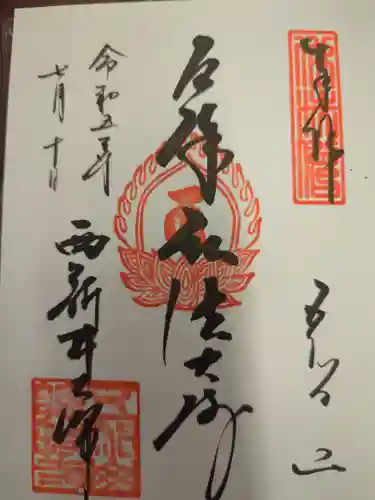 奉拝
五智山
厄除弘法大師
令和五年
七月十日
西新井大師